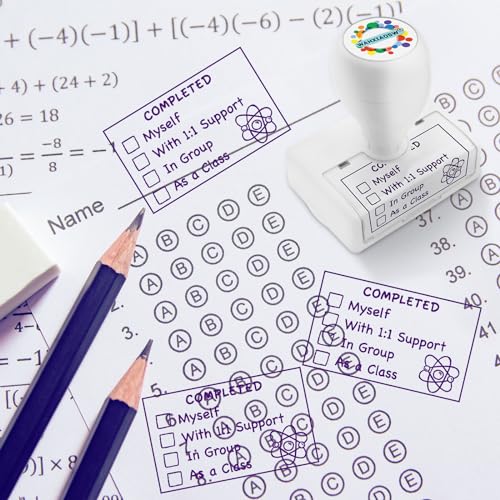 + (−4)(−1)] + [(−4)(−6) − (2)(−1)
4) + (24 + 2)
26 = 18
= -8/8 = −1
1)
WAHXIAOBW
COMPLETED
Myself
With 1:1 Support
In Group
As a Class
Name
COMPLETED
Myself
With 1:1 Support
In Group
As a Class
A B C D E
A B C D E
A B C D E
A B C D E
A B C D E
2.
3.
5.
6.
8.
37.
38.
39.
40.
COMPLETED
Myself
With 1:1 Support
In Group
As a Class
COMPLETED
Myself
With 1:1 Support
In Group
As a Class
4−
= −1
[(−
)] × 8